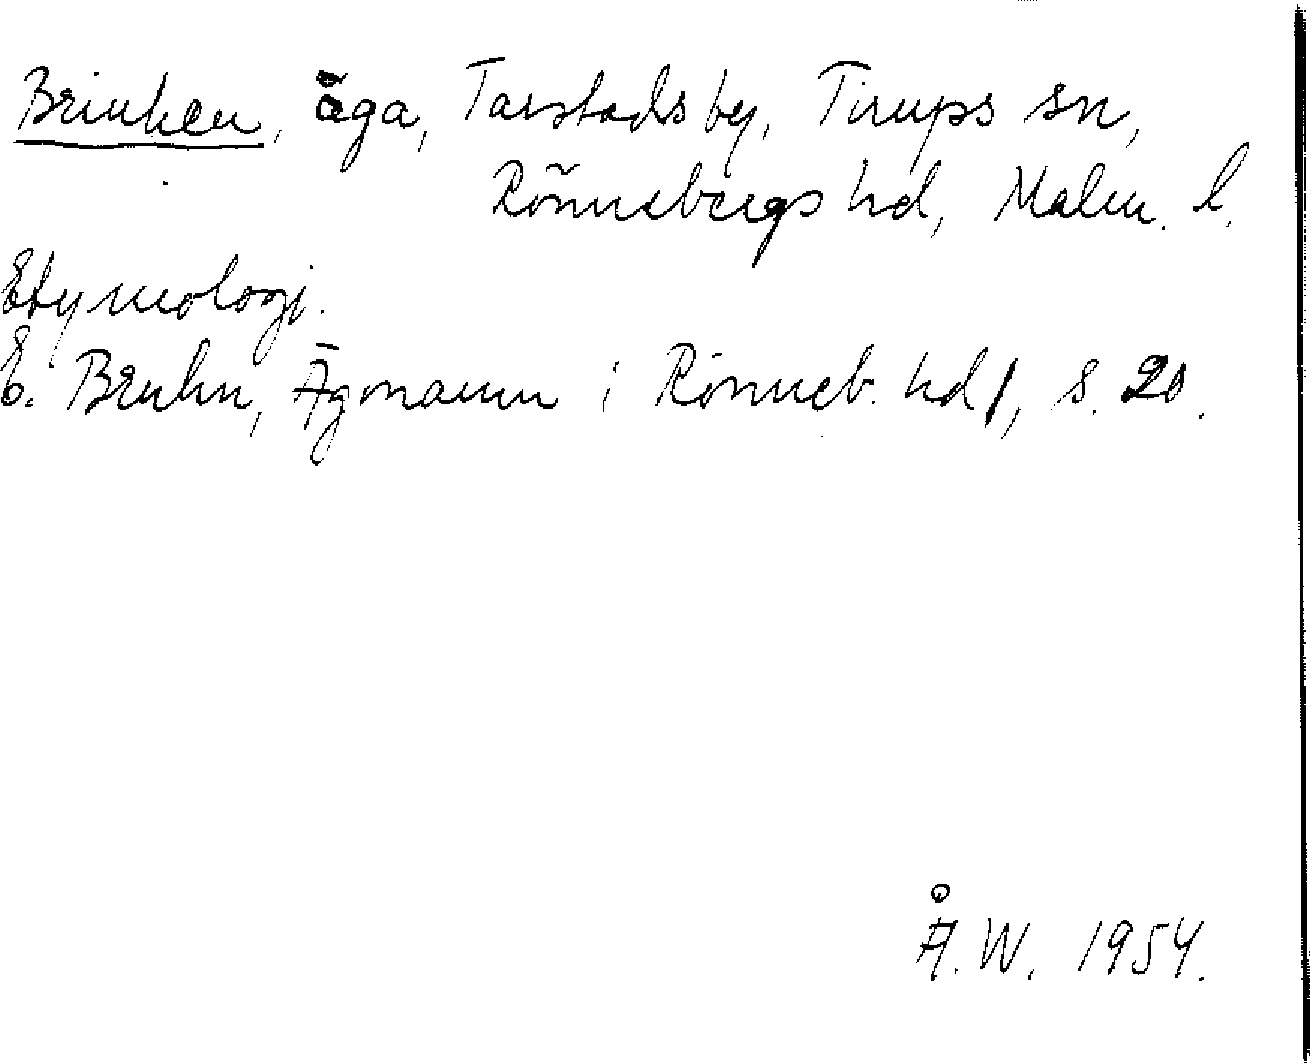 Brinken, äga, Tarstads by, Tirups sn,
Rönnebergs hd, Malm. l.
Etymologi.
E. Bruhn, Ägonamn i Rönneb. hd 1, s. 20.
Å.W. 1954.